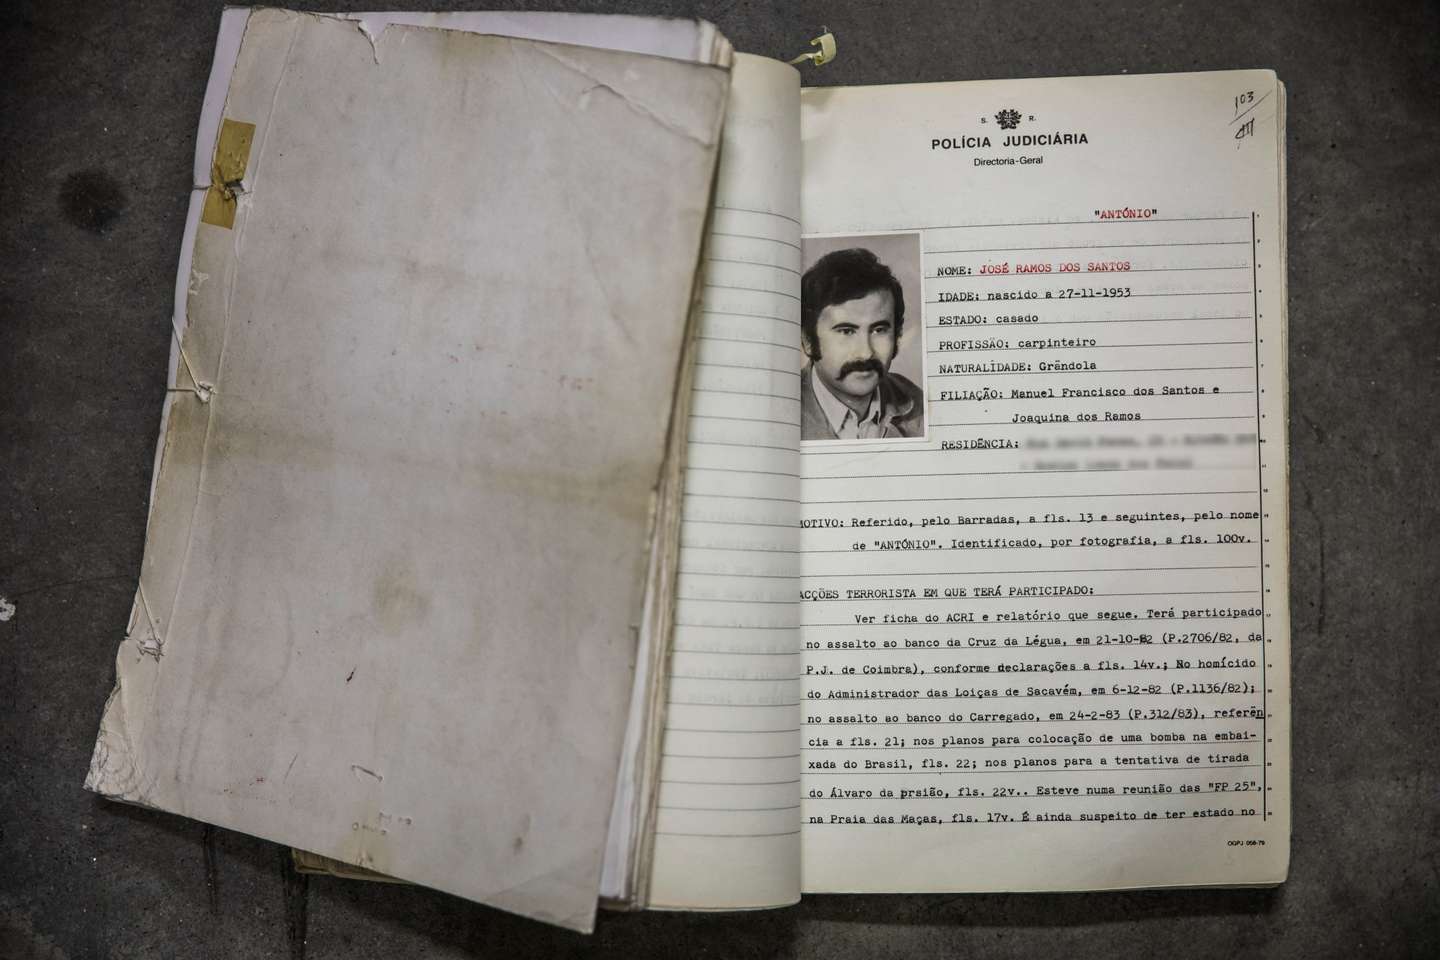 103
S. R.
POLÍCIA JUDICIÁRIA
Directoria-Geral
"ANTÓNIO"
NOME: JOSÉ RAMOS DOS SANTOS
IDADE: nascido a 27-11-1953
ESTADO: casado
PROFISSÃO: carpinteiro
NATURALIDADE: Grândola
FILIAÇÃO: Manuel Francisco dos Santos e
Joaquina dos Ramos
RESIDÊNCIA:
MOTIVO: Referido, pelo Barradas, a fls. 13 e seguintes, pelo nome
de "ANTÓNIO". Identificado, por fotografia, a fls. 100v.
ACÇÕES TERRORISTA EM QUE TERÁ PARTICIPADO:
Ver ficha do ACRI e relatório que segue. Terá participado
no assalto ao banco da Cruz da Légua, em 21-10-82 (P.2706/82, da
P.J. de Coimbra), conforme declarações a fls. 14v.; No homícido
do Administrador das Loiças de Sacavém, em 6-12-82 (P.1136/82);
no assalto ao banco do Carregado, em 24-2-83 (P.312/83), referên
cia a fls. 21; nos planos para colocação de uma bomba na embai-
xada do Brasil, fls. 22; nos planos para a tentativa de tirada
do Álvaro da prsião, fls. 22v.. Esteve numa reunião das "FP 25",
na Praia das Maças, fls. 17v. É ainda suspeito de ter estado no
OGPJ 058-79